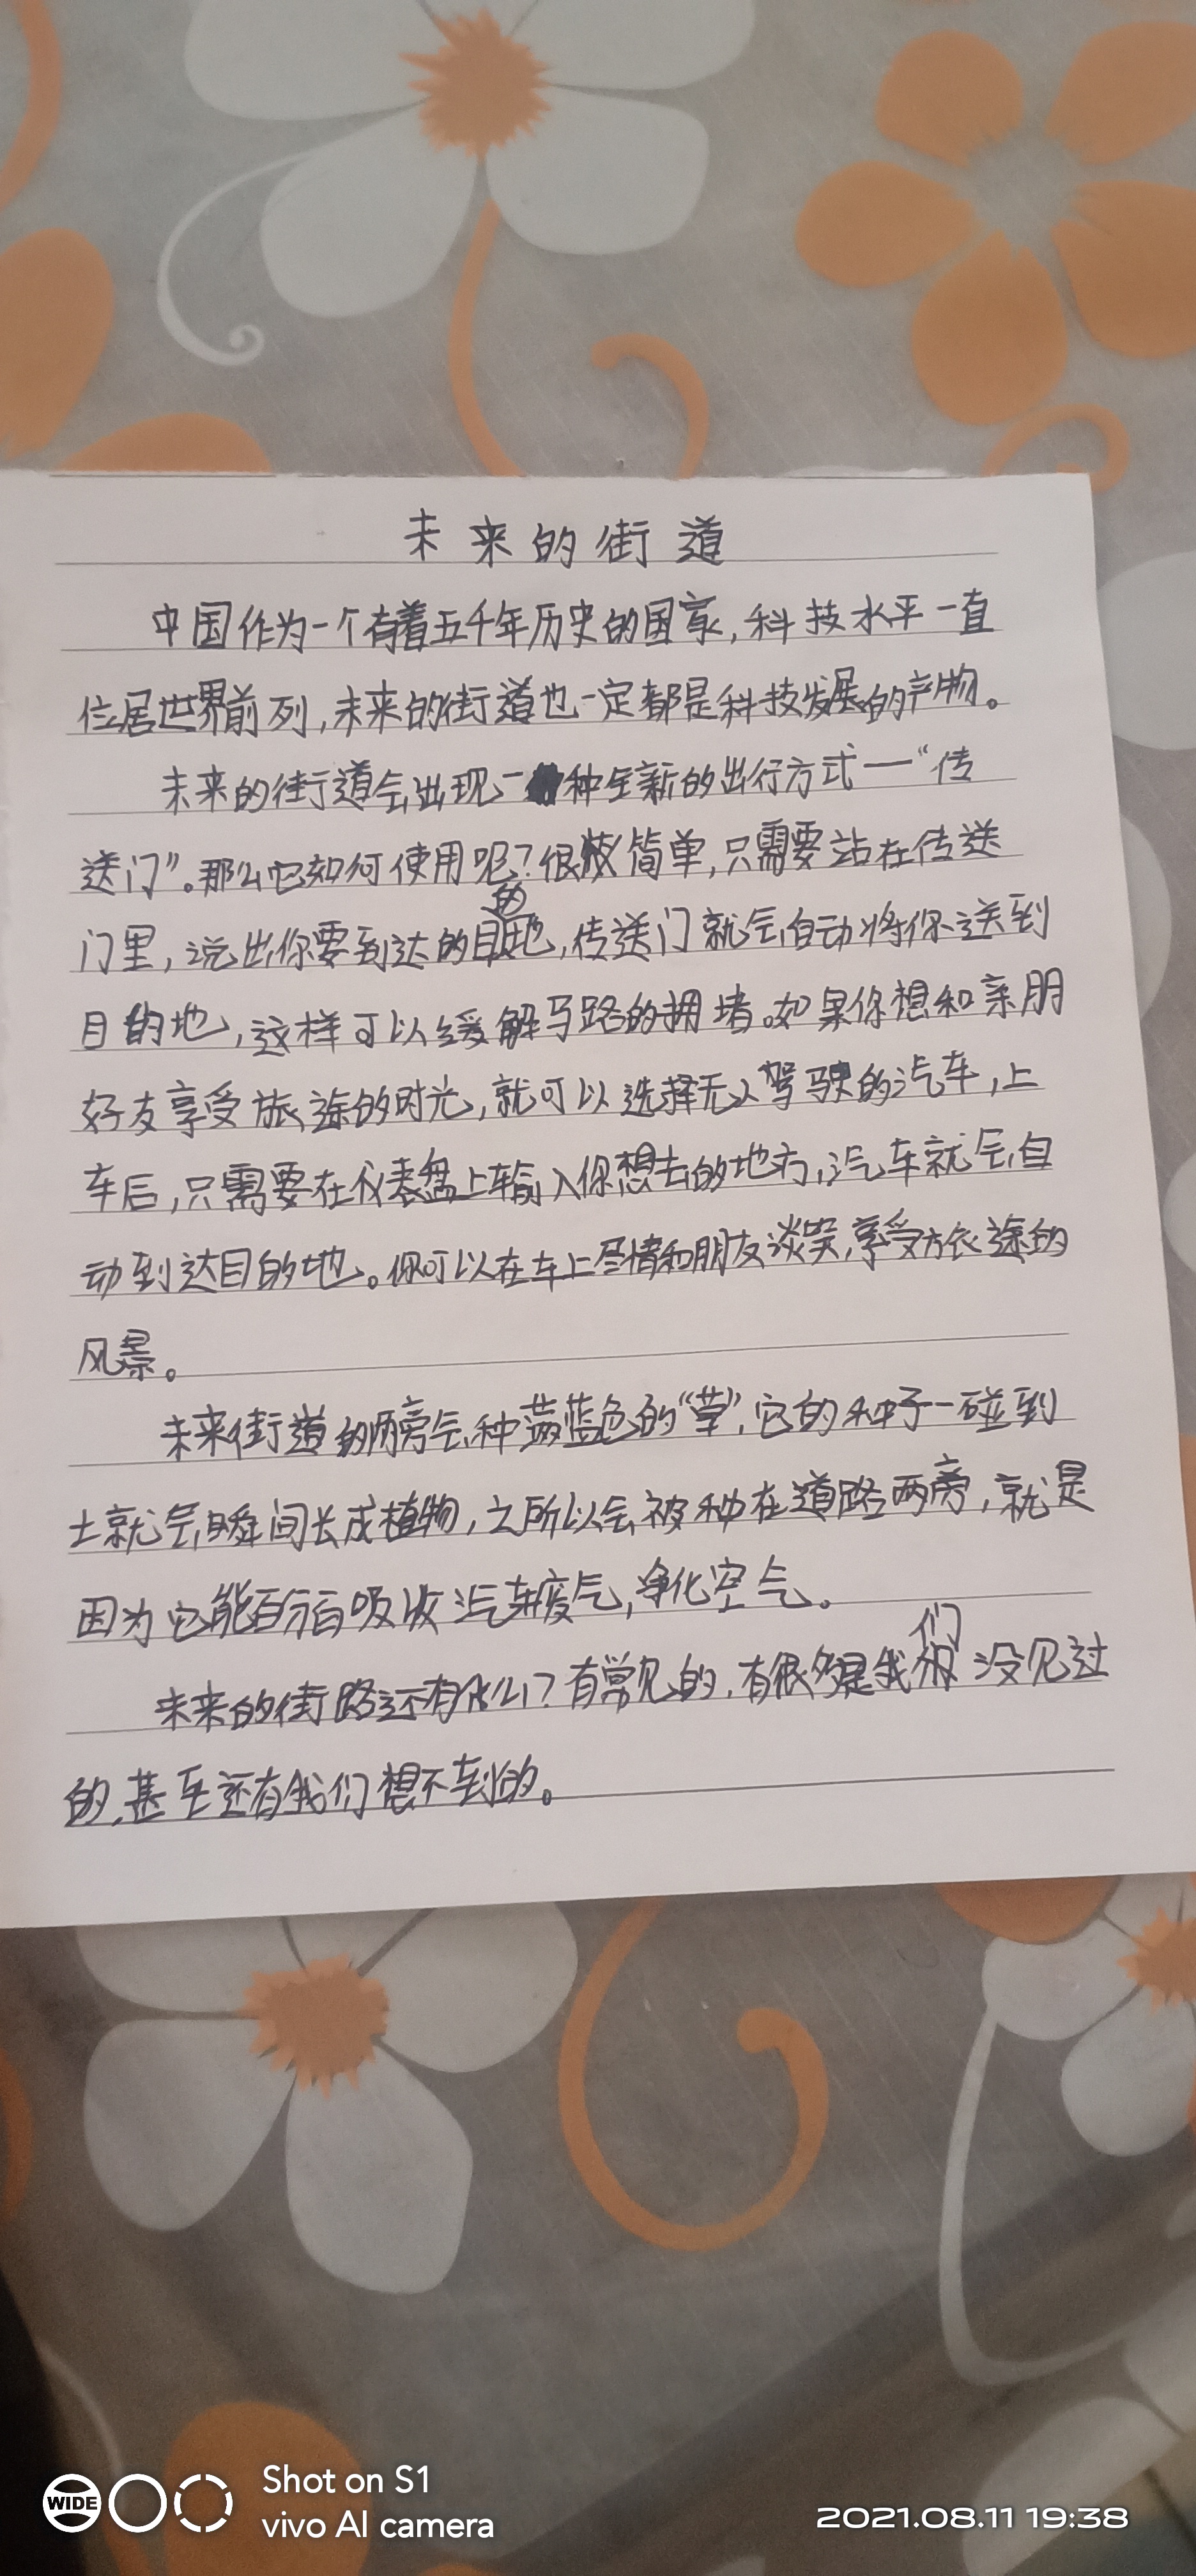 未来的街道
中国作为一个有着五千年历史的国家,科技水平一直
位居世界前列,未来的街道也一定都是科技发展的产物。
未来的街道会出现一种全新的出行方式一“传
送门”。那么它如何使用呢?很简单,只需要站在传送
门里,说出你要到达的目的地,传送门就会自动将你送到
目的地,这样可以缓解马路的拥堵。如果你想和亲朋
好友享受旅途的时光,就可以选择无人驾驶的汽车,上
车后,只需要在仪表盘上输入你想去的地方,汽车就会自
动到达目的地。你可以在车上尽情和朋友谈笑,享受旅途的
风景。
未来街道的两旁会种蓝色的“草”,它的种子一碰到
土就会瞬间长成植物,之所以会被种在道路两旁,就是
因为它能百分百吸收汽车废气,净化空气。
未来的街路还有什么?有常见的,有很多是我们没见过
的,甚至还有我们想不到的。
WIDE
Shot on S1
vivo AI camera
2021.08.11 19:38